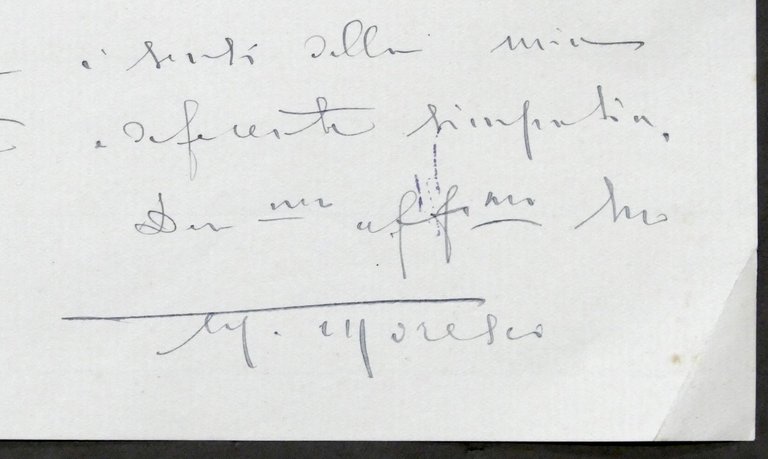 i sensi della mia
e deferente simpatia.
Dev mo aff. mo Suo
M. Moresco